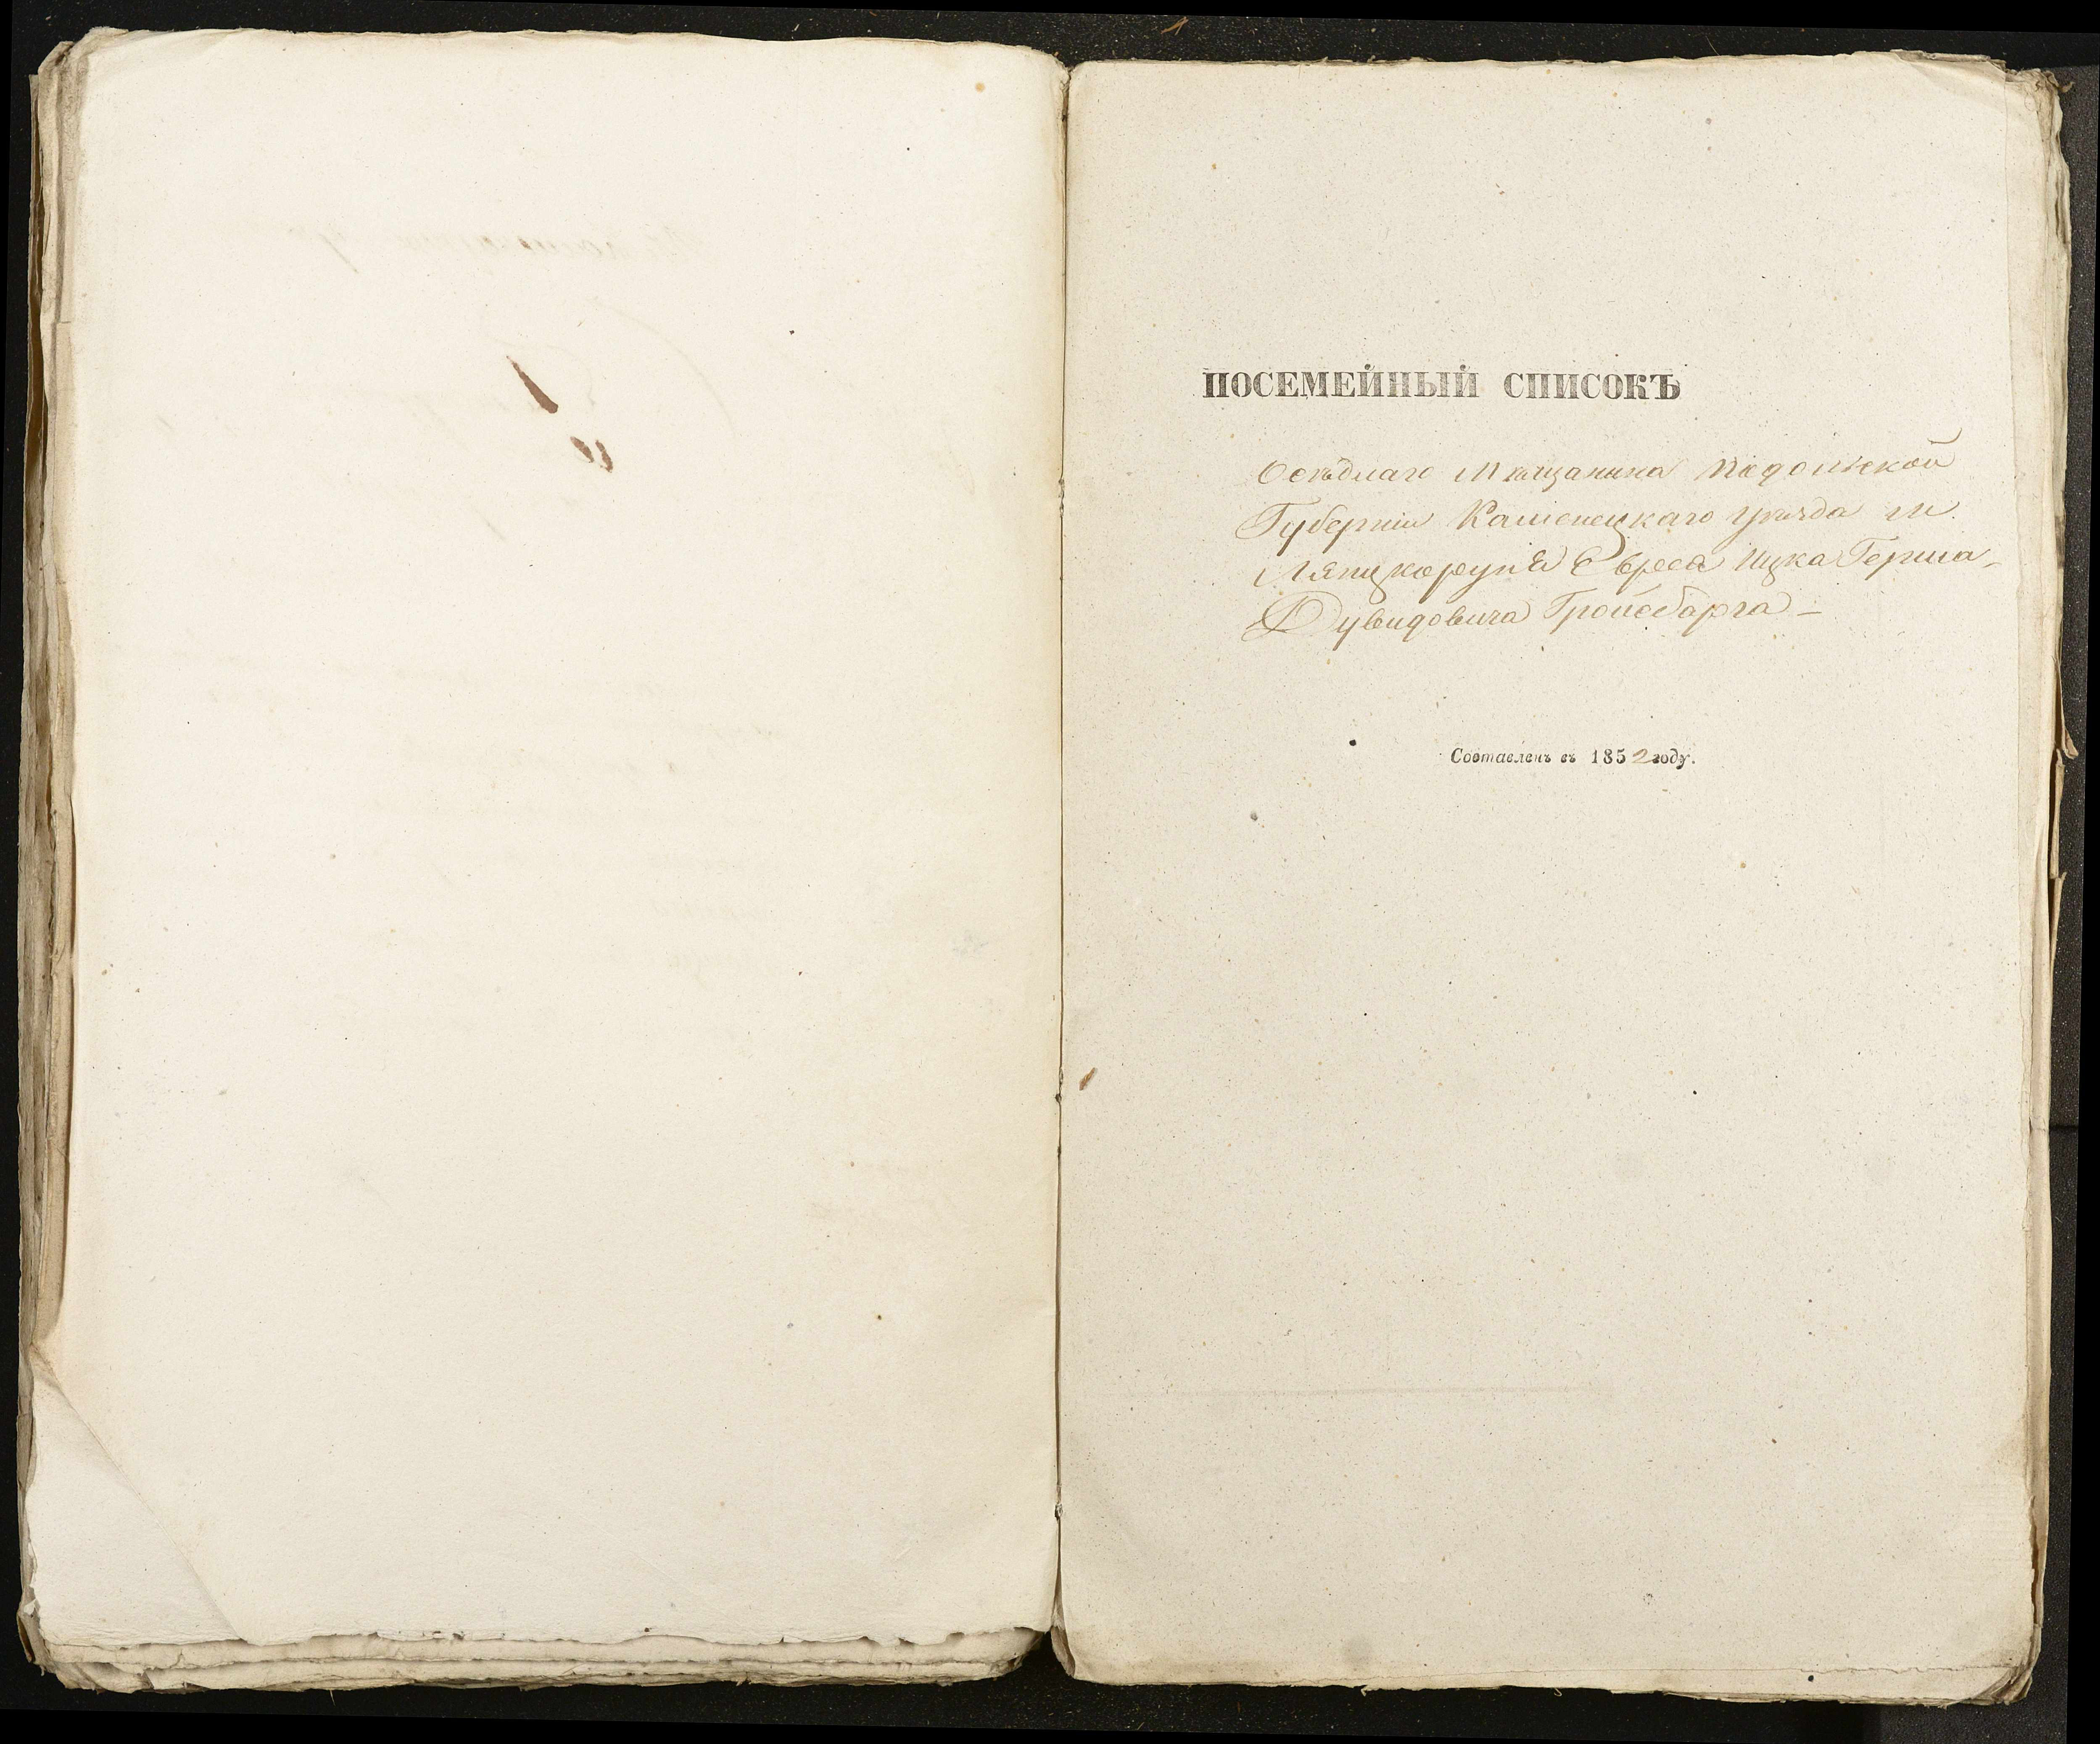 ПОСЕМЕЙНЫЙ СПИСОКЪ
Осѣдлаго Мѣщанина Подольской
Губерніи Каменецкаго уѣзда м.
Лянцкоруня Еврея Ицка Герша
Дувидовича Гройсбарга —
Составленъ въ 1852 году.